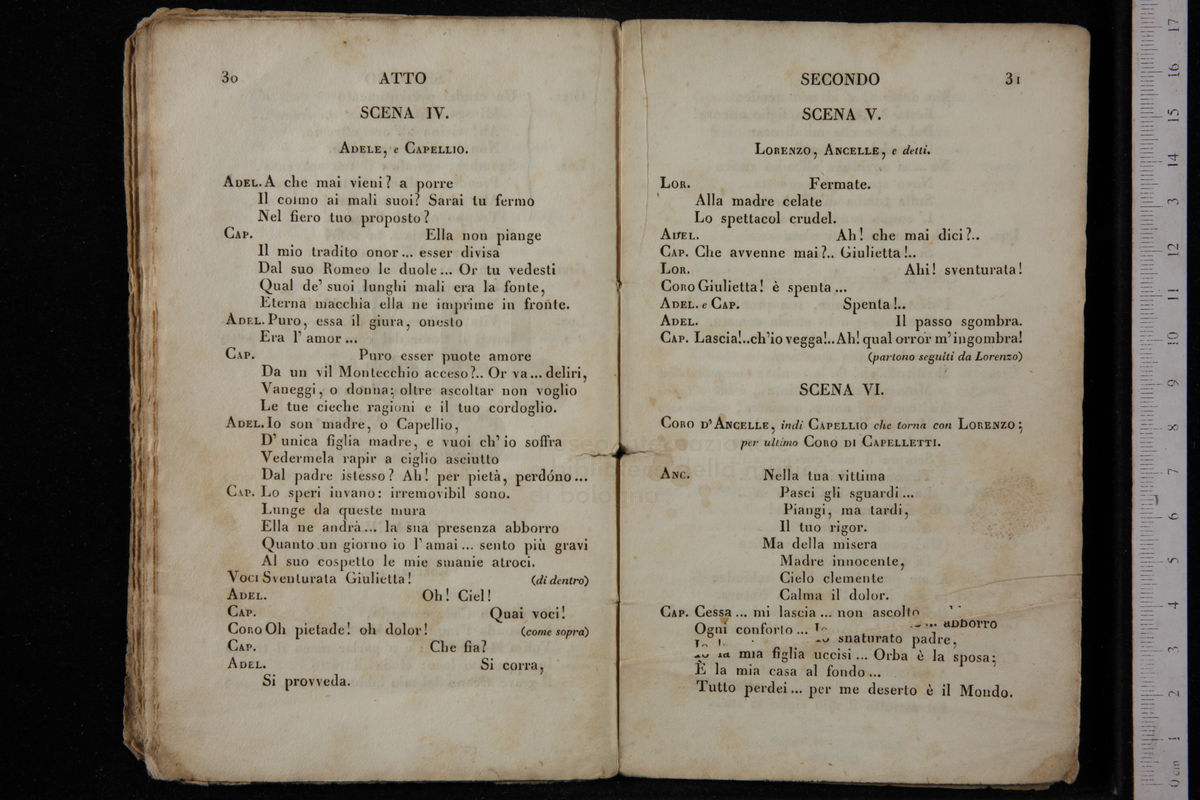 30 ATTO
SCENA IV.
ADELE, e CAPELLIO.
ADEL. A che mai vieni? a porre
Il colmo ai mali suoi? Sarai tu fermo
Nel fiero tuo proposto?
CAP. Ella non piange
Il mio tradito onor... esser divisa
Dal suo Romeo le duole... Or tu vedesti
Qual de' suoi lunghi mali era la fonte,
Eterna macchia ella ne imprime in fronte.
ADEL. Puro, essa il giura, onesto
Era l' amor...
CAP. Puro esser puote amore
Da un vil Montecchio acceso?.. Or va... deliri,
Vaneggi, o donna; oltre ascoltar non voglio
Le tue cieche ragioni e il tuo cordoglio.
ADEL. Io son madre, o Capellio,
D' unica figlia madre, e vuoi ch' io soffra
Vedermela rapir a ciglio asciutto
Dal padre istesso? Ah! per pietà, perdóno...
CAP. Lo speri invano: irremovibil sono.
Lunge da queste mura
Ella ne andrà... la sua presenza abborro
Quanto un giorno io l' amai... sento più gravi
Al suo cospetto le mie smanie atroci.
VOCI Sventurata Giulietta! (di dentro)
ADEL. Oh! Ciel!
CAP. Quai voci!
CORO Oh pietade! oh dolor! (come sopra)
CAP. Che fia?
ADEL. Si corra,
Si provveda.
SECONDO 31
SCENA V.
LORENZO, ANCELLE, e detti.
LOR. Fermate.
Alla madre celate
Lo spettacol crudel.
ADEL. Ah! che mai dici?..
CAP. Che avvenne mai?.. Giulietta!..
LOR. Ahi! sventurata!
CORO Giulietta! è spenta...
ADEL. e CAP. Spenta!..
ADEL. Il passo sgombra.
CAP. Lascia!..ch'io vegga!..Ah! qual orror m'ingombra!
(partono seguiti da Lorenzo)
SCENA VI.
CORO D'ANCELLE, indi CAPELLIO che torna con LORENZO;
per ultimo CORO DI CAPELLETTI.
ANC. Nella tua vittima
Pasci gli sguardi...
Piangi, ma tardi,
Il tuo rigor.
Ma della misera
Madre innocente,
Cielo clemente
Calma il dolor.
CAP. Cessa... mi lascia... non ascolto
Ogni conforto... abborro
snaturato padre,
la mia figlia uccisi... Orba è la sposa;
È la mia casa al fondo...
Tutto perdei... per me deserto è il Mondo.
0 cm 1 2 3 4 5 6 7 8 9 10 11 12 13 14 15 16 17